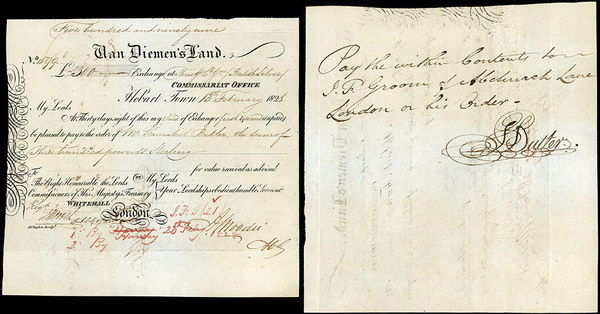 Five hundred and ninety nine
Van Diemen's Land.
No. 599
£ 300 Exchange at
COMMISSARIAT OFFICE
Hobart Town 13th February 1828
My Lords
At Thirty days sight of this my Third of Exchange first & second unpaid
be pleased to pay to the order of Mr. Samuel Butler, the sum of
Three hundred pounds Sterling
for value received as advised.
To
The Right Honorable the Lords
Commissioners of His Majesty's Treasury
WHITEHALL
London
My Lords
Your Lordships obedient humble Servant
Moodie
Pay the within Contents to
J. F. Groom of Abchurch Lane
London or his Order -
Butler.